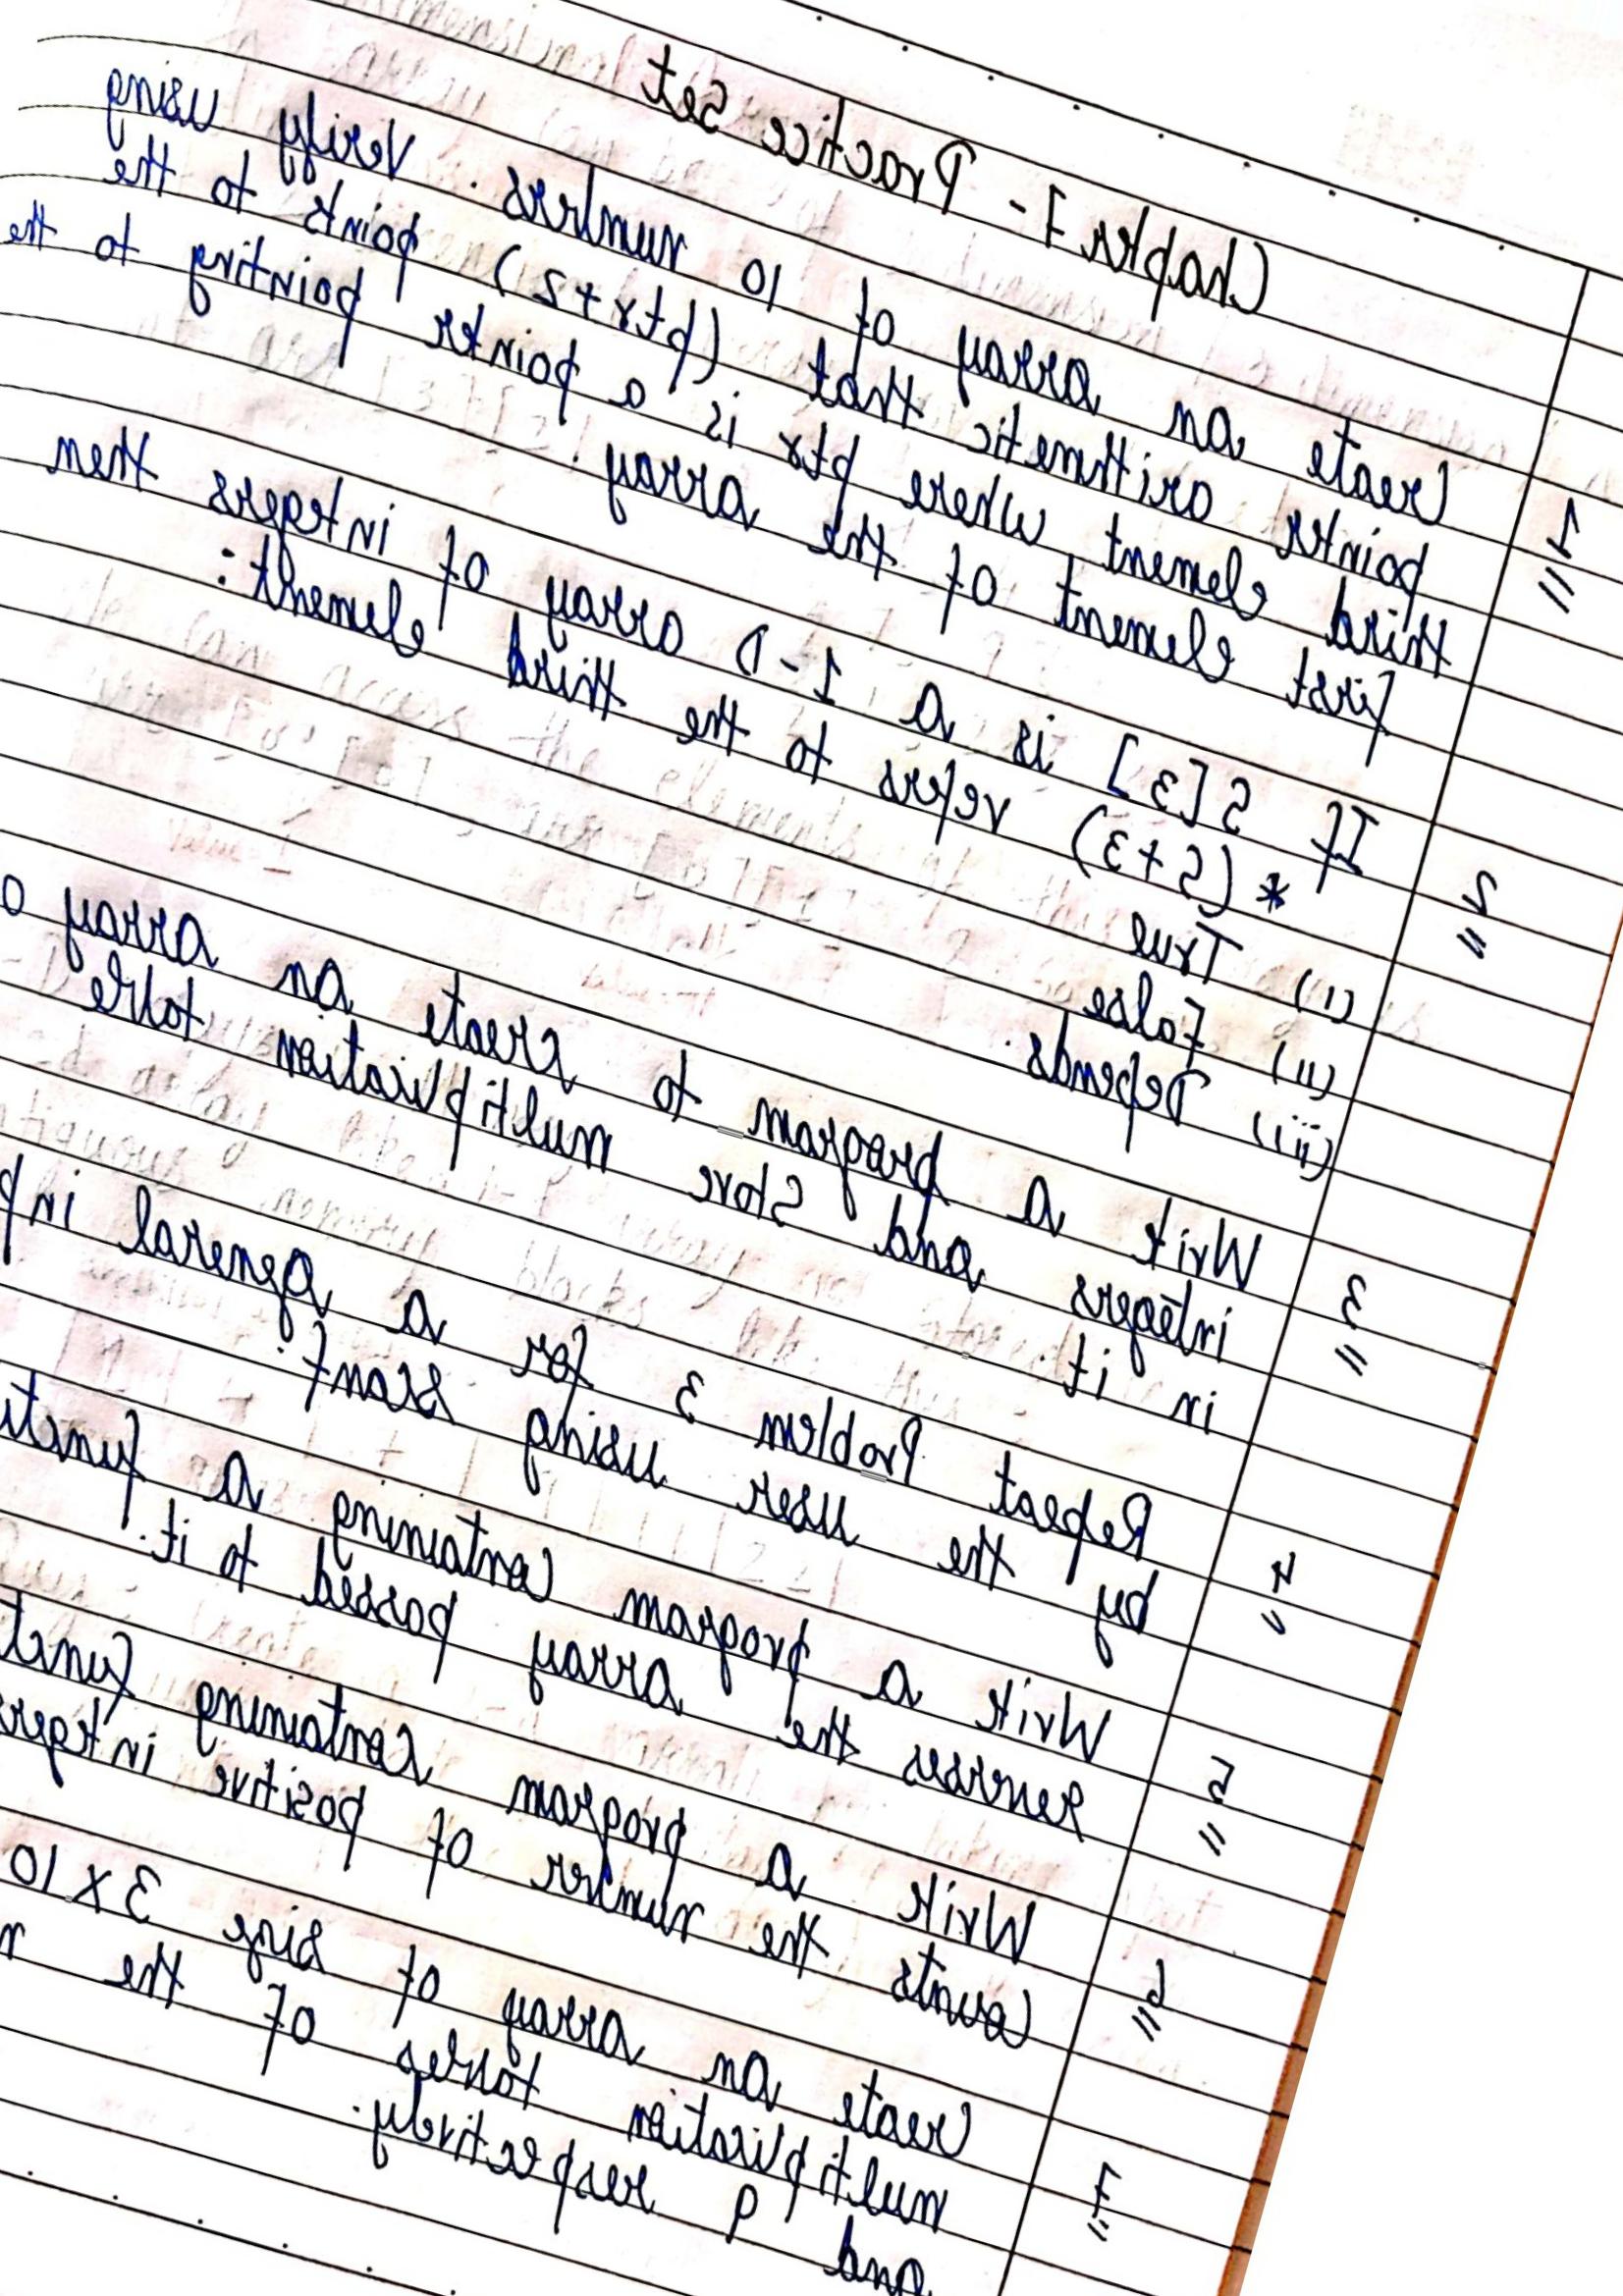 Chapter 7 - Practice Set
1 Create an array of 10 numbers. Verify using
pointer arithmetic that (ptr+2) points to the
third element where ptr is a pointer pointing to the
first element of the array.
2 If S[3] is a 1-D array of integers then
*(S+3) refers to the third element:
(i) True
(ii) False
(iii) Depends.
3 Write a program to create an array o
integers and store multiplication table
in it
4 Repeat Problem 3 for a general inp
by the user using scanf.
5 Write a program containing a functi
reverses the array passed to it.
6 Write a program containing funct
counts the number of positive integers
7 Create an array of size 3x10
multiplication tables of the n
and 9 respectively.